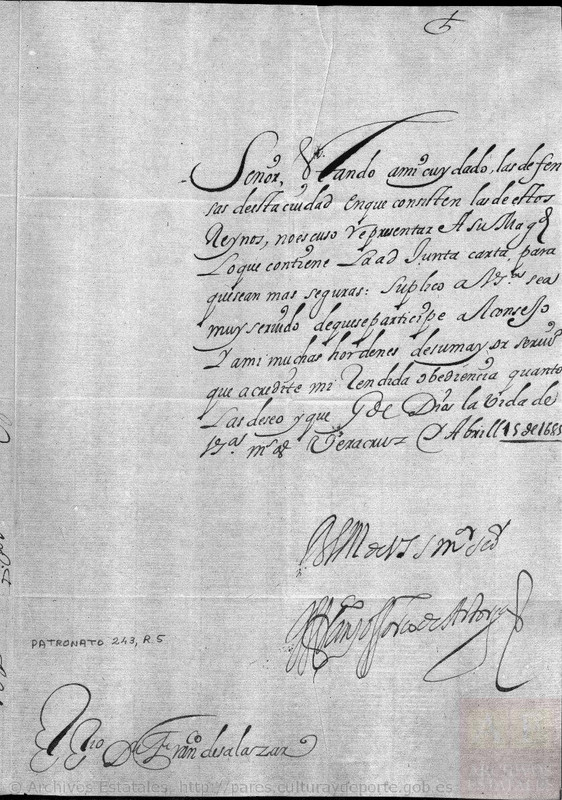 Señor, estando a mi cuydado, las defen
sas de esta ciudad en que consisten las de estos
Reynos, no escuso representar A su Magd
Lo que contiene La ad Junta carta, para
que sean mas seguras: suplico a Vs. sea
muy seruido de que se participe al Conssejo
Y a mi muchas hordenes de su mayor seruiº
que a credite mi Rendida obediencia quanto
Las deseo y que Gde Dios la Vida de
ms as Veracruz Y Abrill 15 de 1685
BLM de VS su mor
PATRONATO 243, R.5
Dn Franco de salazar
© Archives Estatales, http://pares.culturaydeporte.gob.es